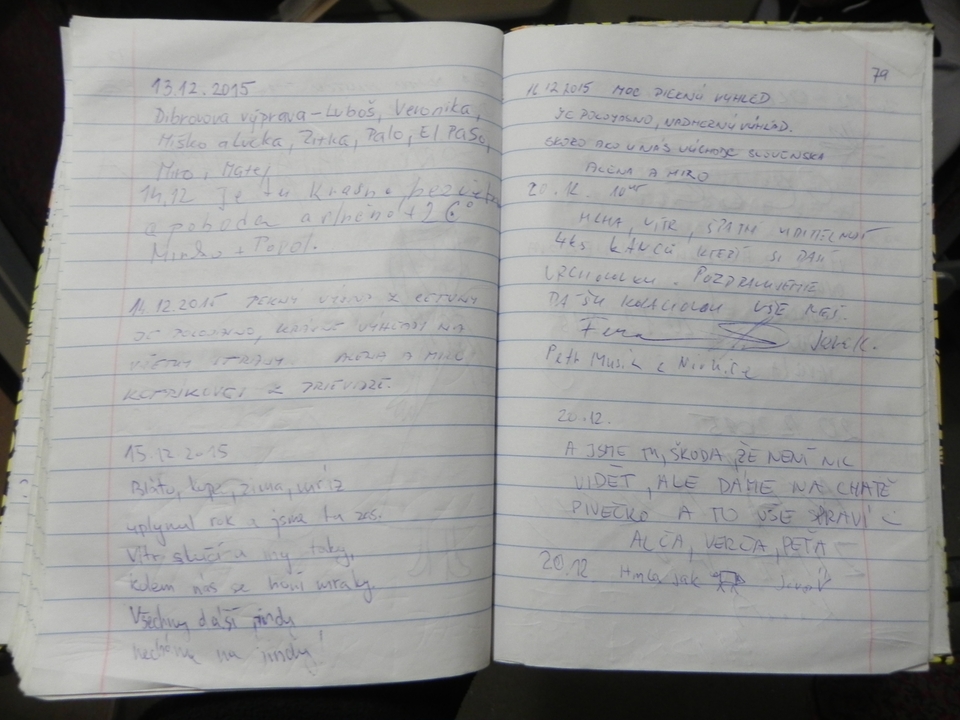 13.12.2015
Dibrovova výprava – Luboš, Veronika,
Miško a Lucka, Zitka, Palo, El PASo,
Miro, Matej
14.12 Je tu krásne,
a pohoda a slnéčno +2 C°
Mirko + Popol.
14.12.2015 PEKNÝ VÝŠĽAP Z
JE POLOJASNO, KRÁSNE VÝHĽADY NA
VŠETKY STRANY. ALENA A MIRO
Z PRIEVIDZE.
15.12 2015
Bláto, kupa, zima, mríz
uplynul rok a jsme tu zas.
Vítr skučí a my taky,
kolem nás se honí mraky.
Všechny další jindy
necháme na jindy!
79
14.12.2015 MOC PĚKNÝ VÝHLED
JE POLOJASNO, NADHERNÝ VÝHĽAD.
SKORO AKO U NÁS VÝCHOD SLOVENSKA
ALENA A MIRO
20.12.
MLHA, VÍTR, ŠPATNÁ VIDITELNOST
4ks KANCŮ KTEŘÍ SI DALI
VRCHOLOVKU. POZDRAVUJEME
DALŠÍ VŠE NEJ.
Fera
Petr Musik z
20.12.
A JSME TU, ŠKODA, ŽE NENÍ NIC
VIDĚT, ALE DÁME NA CHATĚ
PIVEČKO A TO VŠE SPRAVÍ
ALČA, VERČA, PEŤA
20.12 Hmla jak